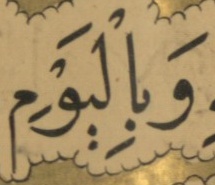 وَبِالْيَوْمِ